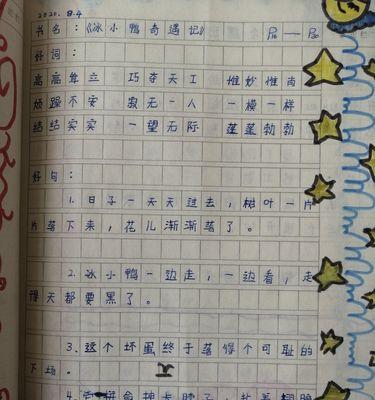 2020.8.4
书名：《冰小鸭奇遇记》 P₁ — P₈₀
好词：
高高耸立 巧夺天工 惟妙惟肖
烦躁不安 寂无一人 一模一样
结结实实 一望无际 蓬蓬勃勃
好句：
1.日子一天天过去，树叶一片
片落下来，花儿渐渐落了。
2.冰小鸭一边走，一边看，走
得天都要黑了。
3.这个坏蛋终于落得个可耻的
下场。
4.